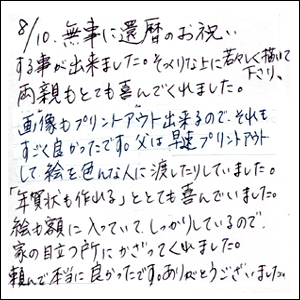 8/10. 無事に還暦のお祝い
する事が出来ました。そっくりな上に若々しく描いて
下さり、
両親もとても喜んでくれました。
画像もプリントアウト出来るので、それも
すごく良かったです。父は早速プリントアウト
して絵を色んな人に渡したりしていました。
「年賀状も作れる」ととても喜んでいました。
絵も額に入っていて、しっかりしているので、
家の目立つ所にかざってくれました。
頼んで本当に良かったです。ありがとうございました。